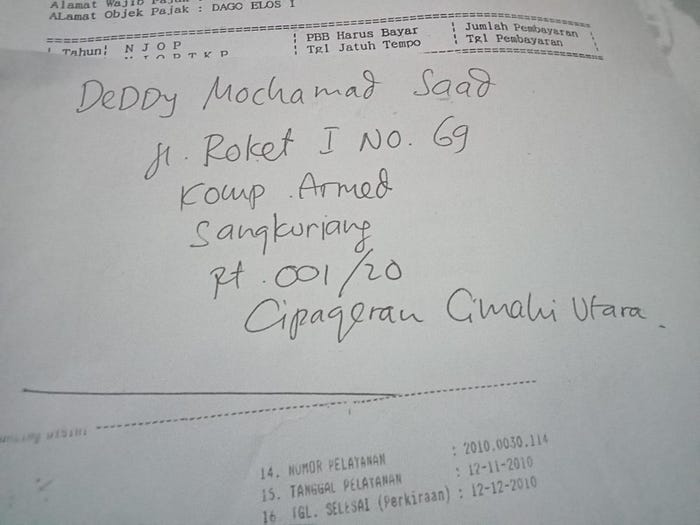 Alamat Wajib Pajak
ALamat Objek Pajak : DAGO ELOS I
Tahun¦ N J O P ¦ PBB Harus Bayar ¦ Jumlah Pembayaran ¦
N J O P T K P ¦ Tgl Jatuh Tempo ¦ Tgl Pembayaran ¦
DeDDy Mochamad Saad
Jl. Roket I No. 69
Komp. Armed
Sangkuriang
Rt. 001/20
Cipageran Cimahi Utara.
14. NUMOR PELAYANAN : 2010.0030.114
15. TANGGAL PELAYANAN : 12-11-2010
16 TGL. SELESAI (Perkiraan) : 12-12-2010